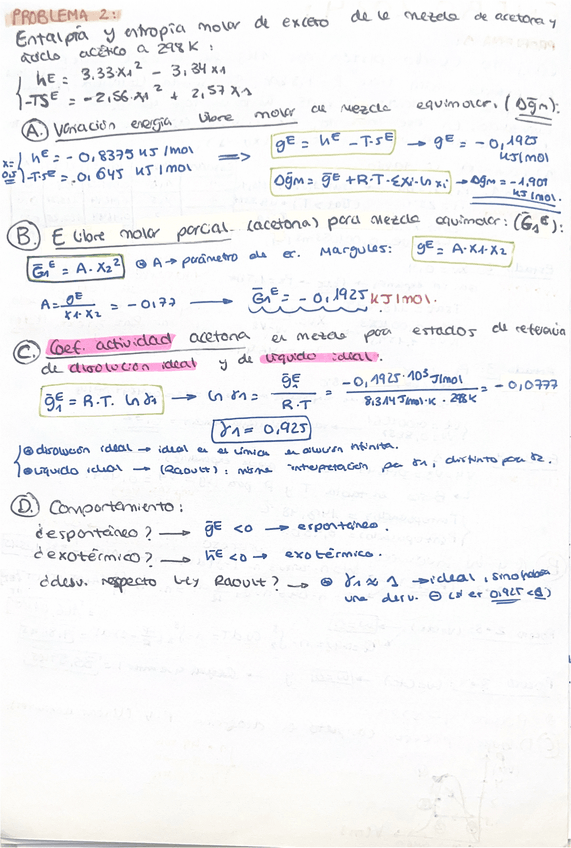 PROBLEMA 2:
Entalpía y entropía molar de exceso de la mezcla de acetona y
ácido acético a 298K:
hᴱ = 3.33·x₁² − 3,34 x₁
-TSᴱ = −2,56·x₁² + 2,57 x₁
A. Variación energía libre molar en mezcla equimolar. (Δḡm):
x₁= 0,5 hᴱ = −0,8375 kJ/mol ⟹ gᴱ = hᴱ − T·Sᴱ → gᴱ = −0,1925 kJ/mol
-T·Sᴱ = 0,645 kJ/mol Δḡm = ḡᴱ + R·T·Σxi·ln xi → Δgm = −1,909 kJ/mol.
B. E libre molar parcial (acetona) para mezcla equimolar: (Ḡ₁ᴱ):
Ḡ₁ᴱ = A·X₂² A → parámetro de ec. Margules: gᴱ = A·X₁·X₂
A = gᴱ / X₁·X₂ = −0,77 → Ḡ₁ᴱ = −0,1925 kJ/mol.
C. Coef. actividad acetona en mezcla por estados de referencia
de disolución ideal y de líquido ideal.
ḡ₁ᴱ = R.T. ln γ₁ → ln γ₁ = ḡᴱ / R·T = −0,1925·10³ J/mol / 8,314 J/mol·K · 298K = −0,0777
γ₁ = 0,925
disolución ideal → ideal es el límite en dilución infinita.
Líquido ideal → (Raoult): misma interpretación pa γ₁, distinto pa γ₂.
D. Comportamiento:
¿espontáneo? → ḡᴱ <0 → espontáneo.
¿exotérmico? → h̄ᴱ <0 → exotérmico.
¿desv. respecto Ley Raoult? → γ₁ ≈ 1 → ideal, sino habrá
una desv. ⊖ (si es 0,925 <1)